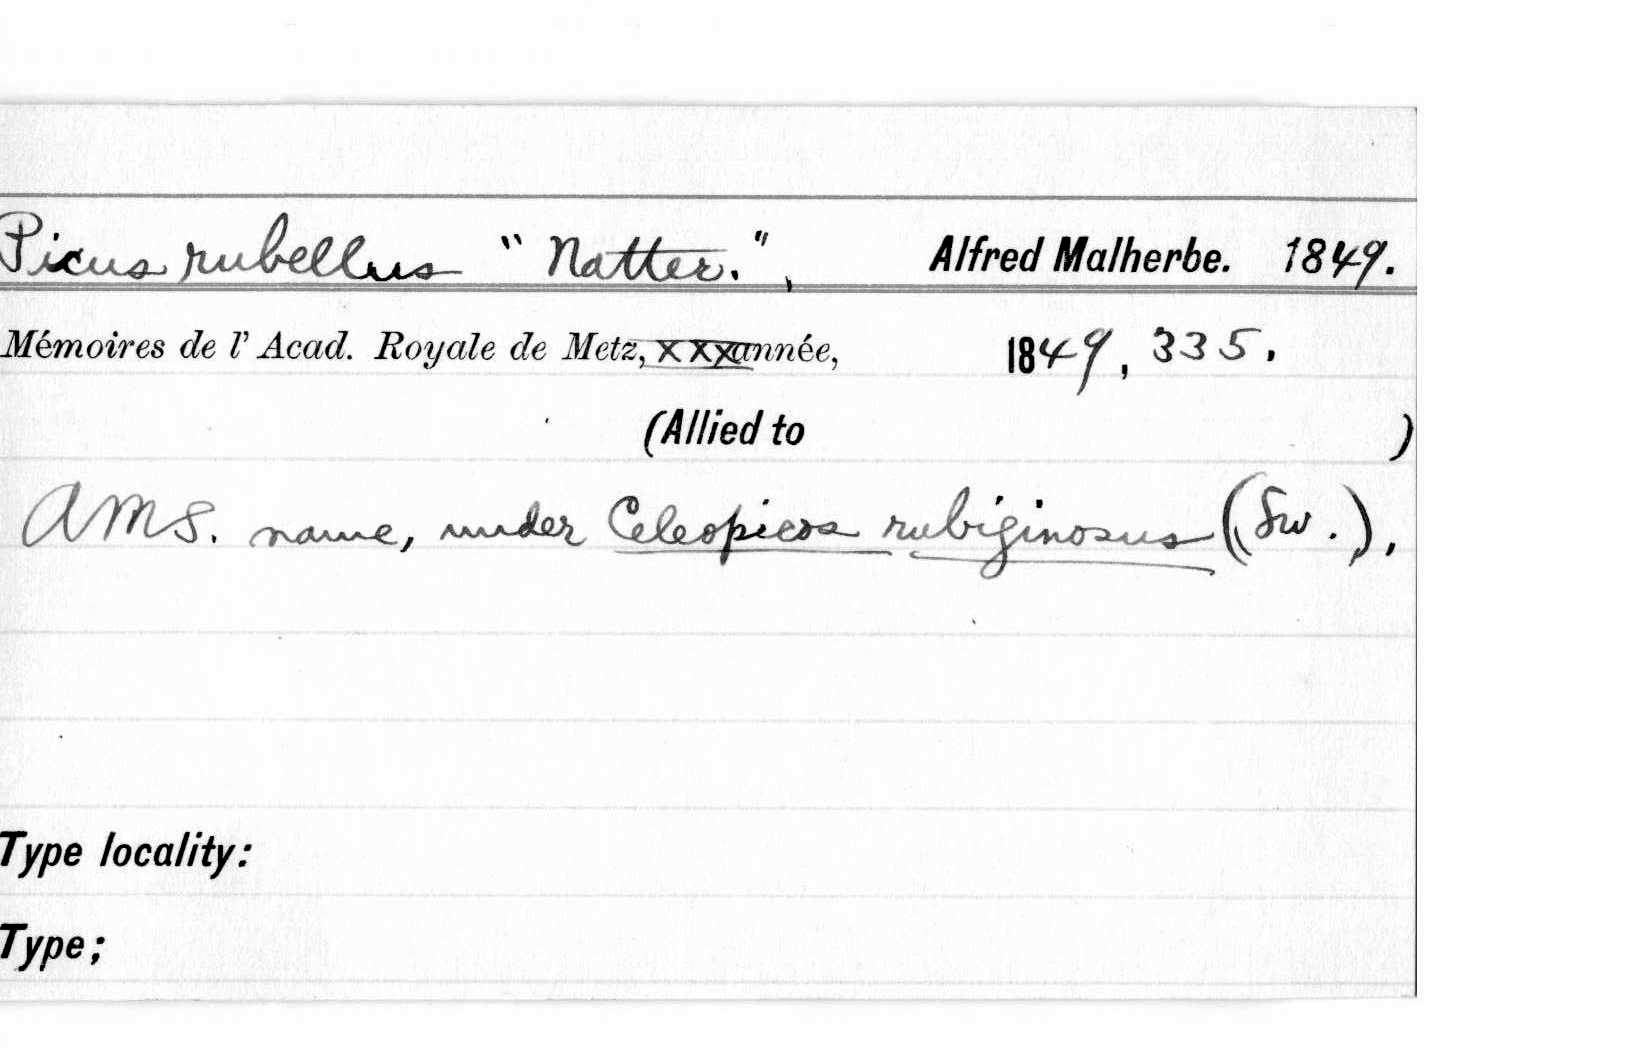 Picus rubellus "Natter.", Alfred Malherbe. 1849.
Mémoires de l' Acad. Royale de Metz, XXX année, 1849, 335.
(Allied to )
A MS. name, under Celeopicos rubiginosus (Sw.).
Type locality:
Type;